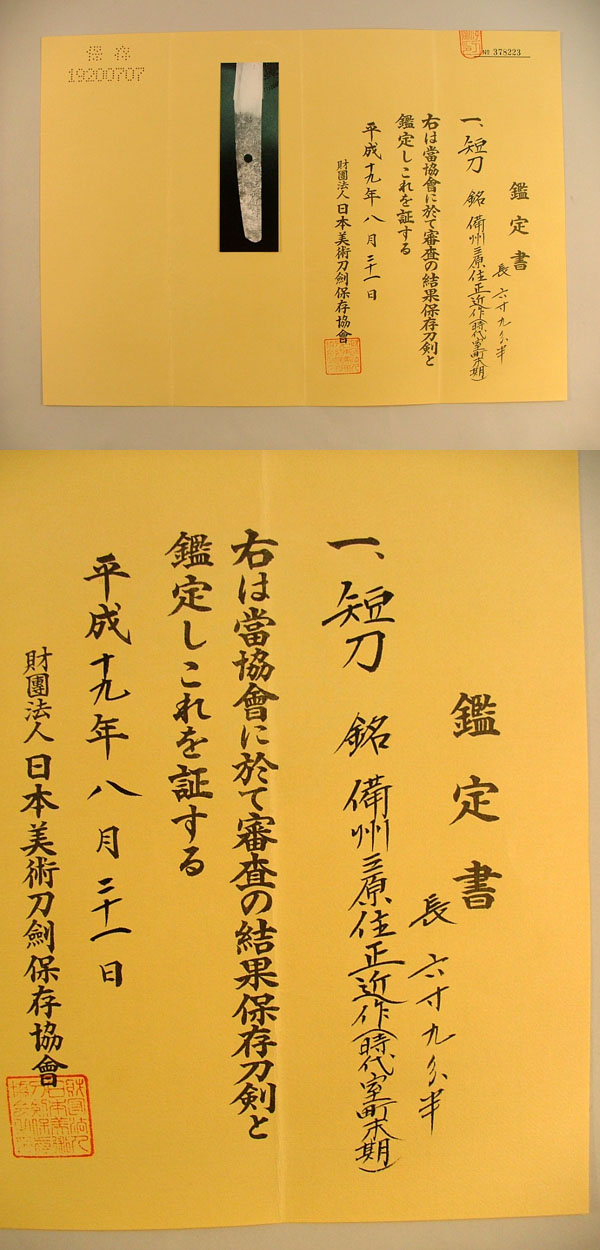 保存
19200707
№ 378223
鑑定書
一、短刀 銘 備州三原住正近作(時代室町末期)
長 六寸九分半
右は當協會に於て審査の結果保存刀剣と
鑑定しこれを証する
平成十九年八月二十一日
財團法人日本美術刀劍保存協會
鑑定書
一、短刀 銘 備州三原住正近作(時代室町末期)
長 六寸九分半
右は當協會に於て審査の結果保存刀剣と
鑑定しこれを証する
平成十九年八月二十一日
財團法人日本美術刀劍保存協會